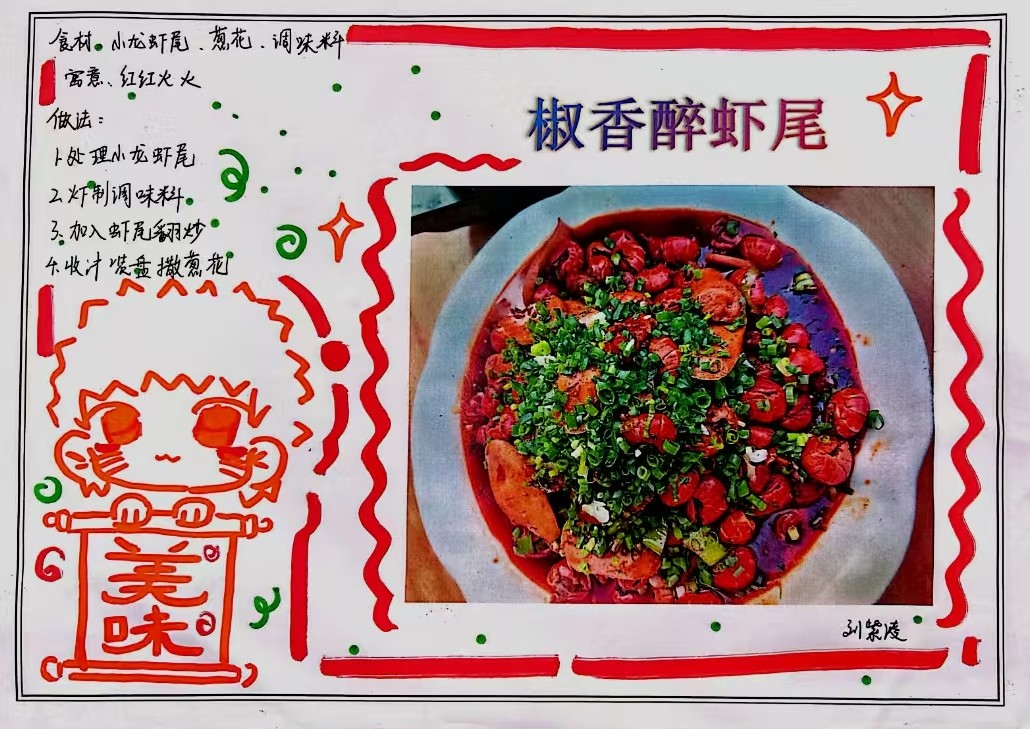 食材：小龙虾尾、葱花、调味料
寓意：红红火火
做法：
1.处理小龙虾尾
2.炸制调味料.
3.加入虾尾翻炒
4.收汁装盘撒葱花
椒香醉虾尾
美味
刘紫凌